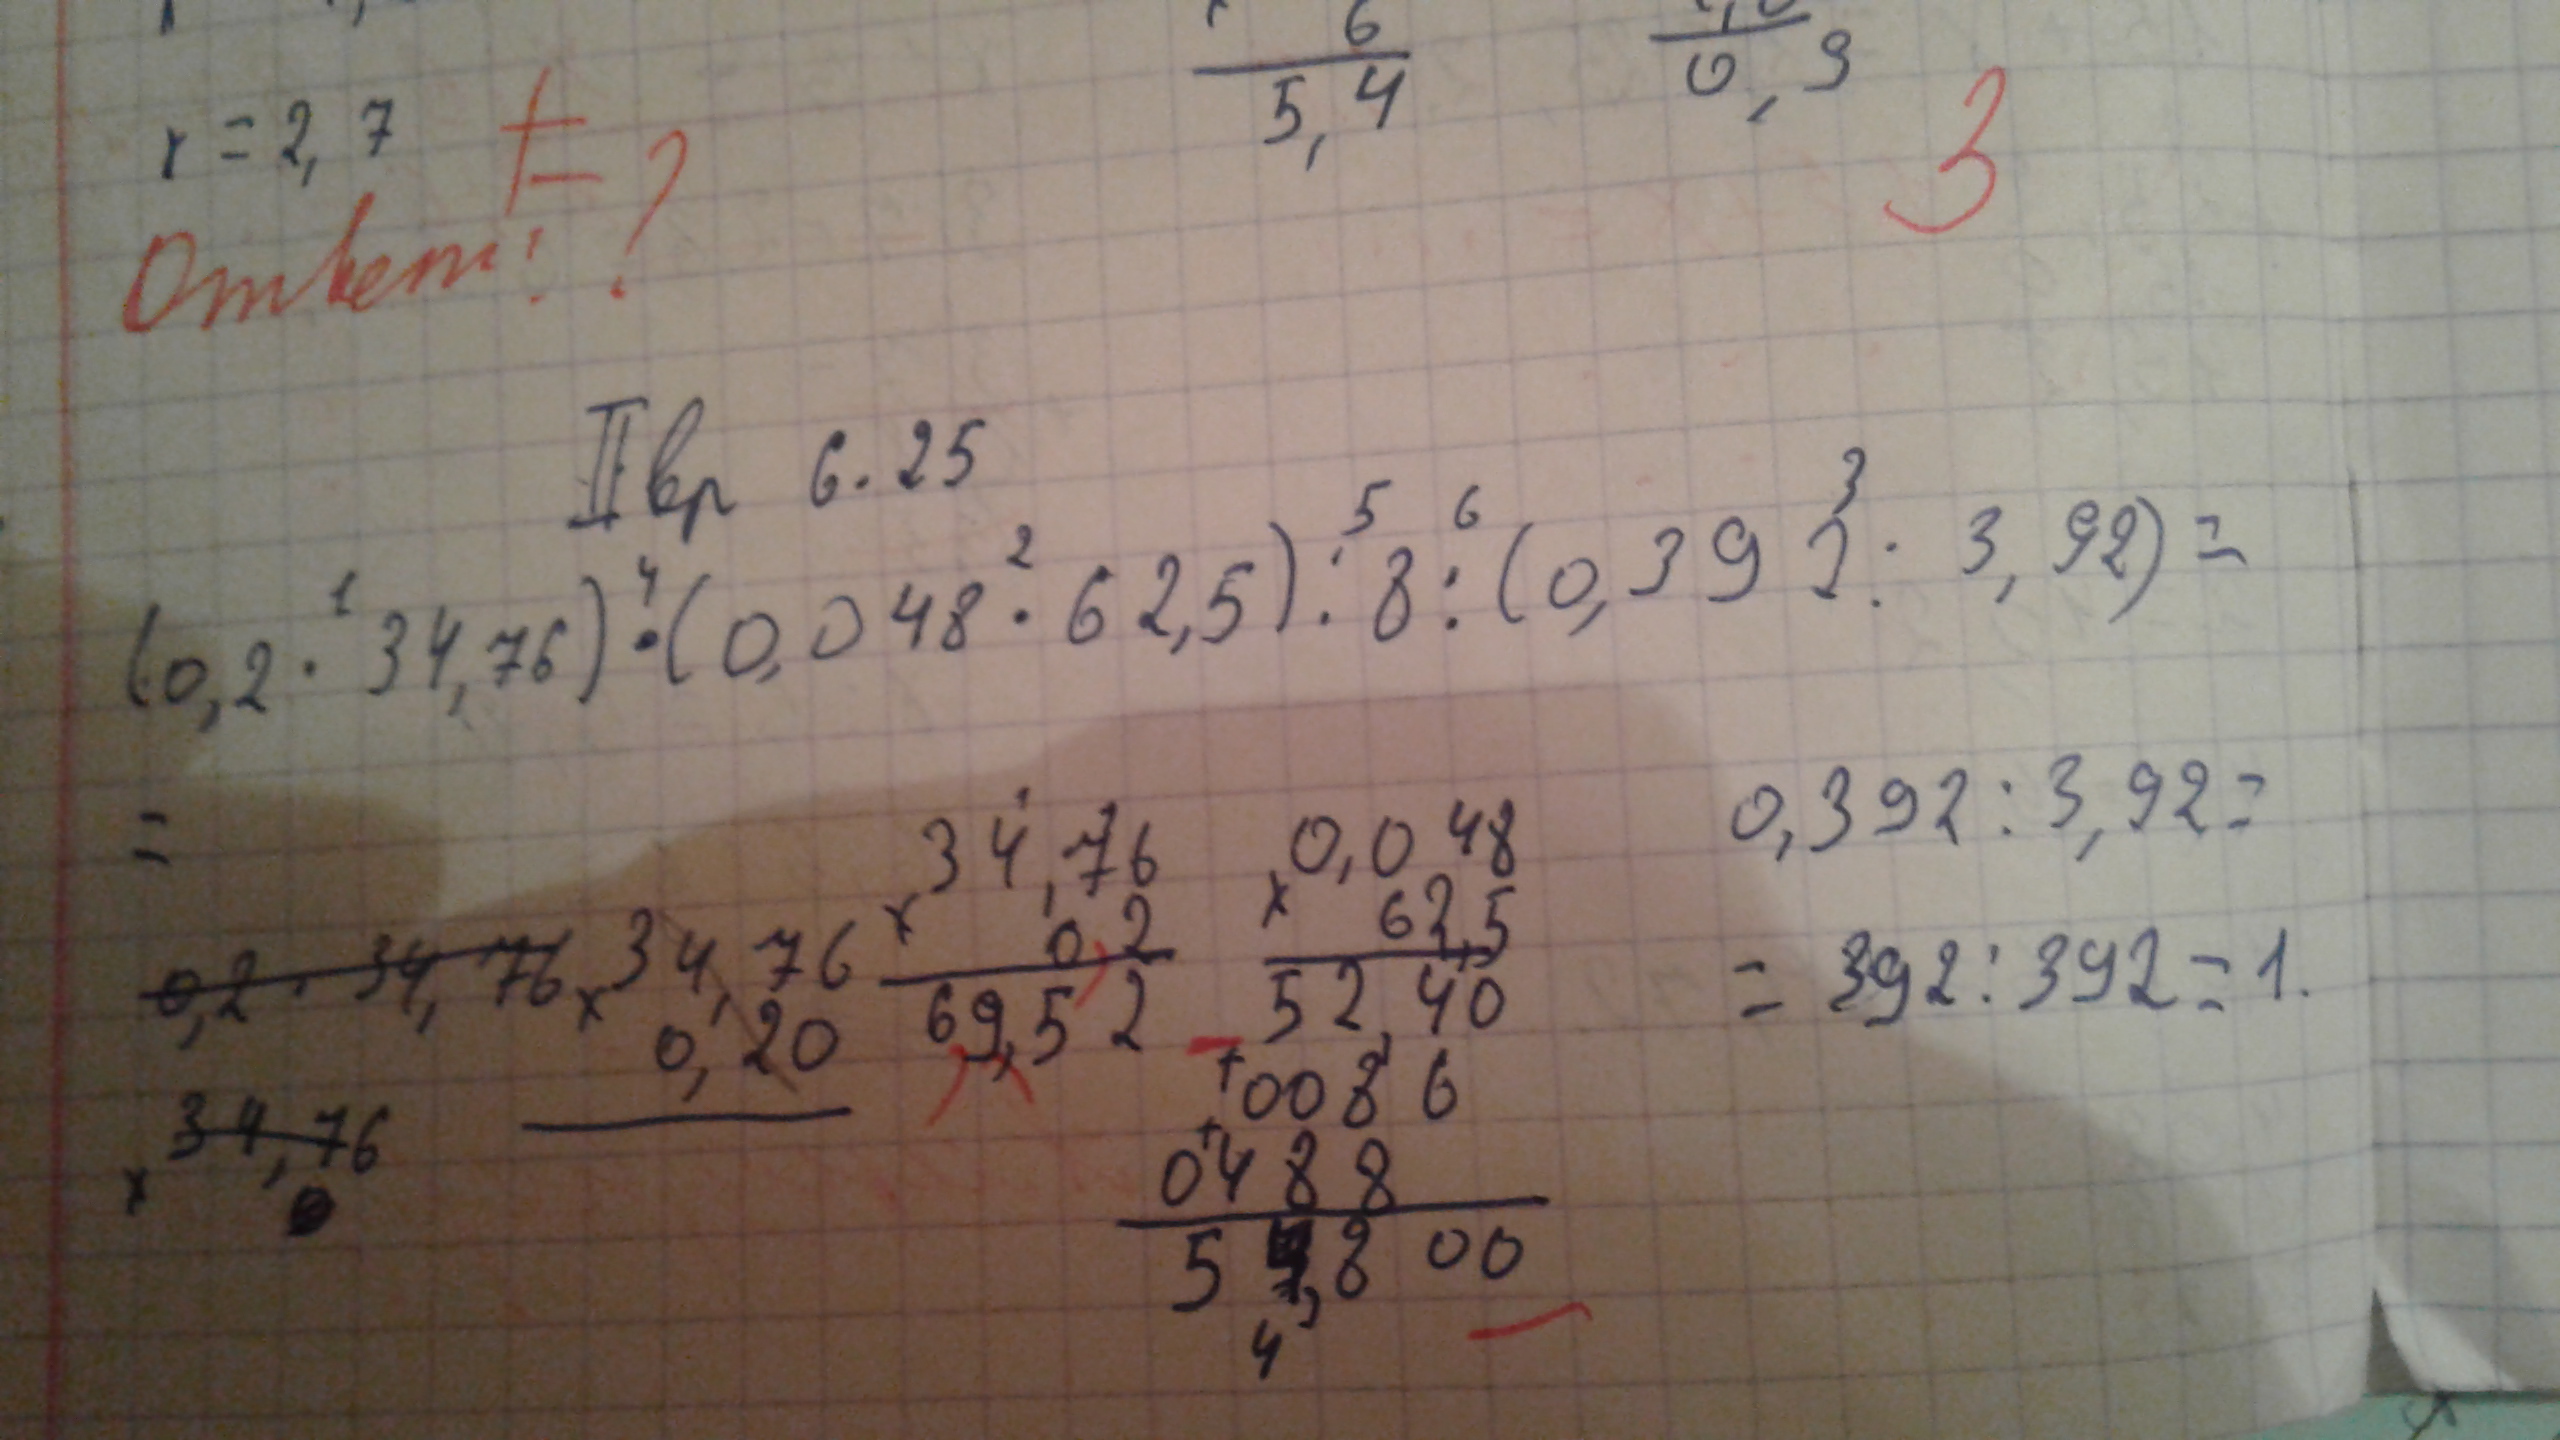 6
5,4
0,9
x = 2,7
3
Ответ: ?
II вр 6.25
1 4 2 5 6 3
(0,2 · 34,76) · (0,048 · 62,5) : 8 : (0,392 : 3,92) =
=
0,2 · 34,76
x 34,76
0,20
x 34,76
x 34,76
0,2
69,52
x 0,048
62,5
52,40
+ 0086
+ 0488
5 4,8 00
4
0,392 : 3,92 =
= 392 : 392 = 1.